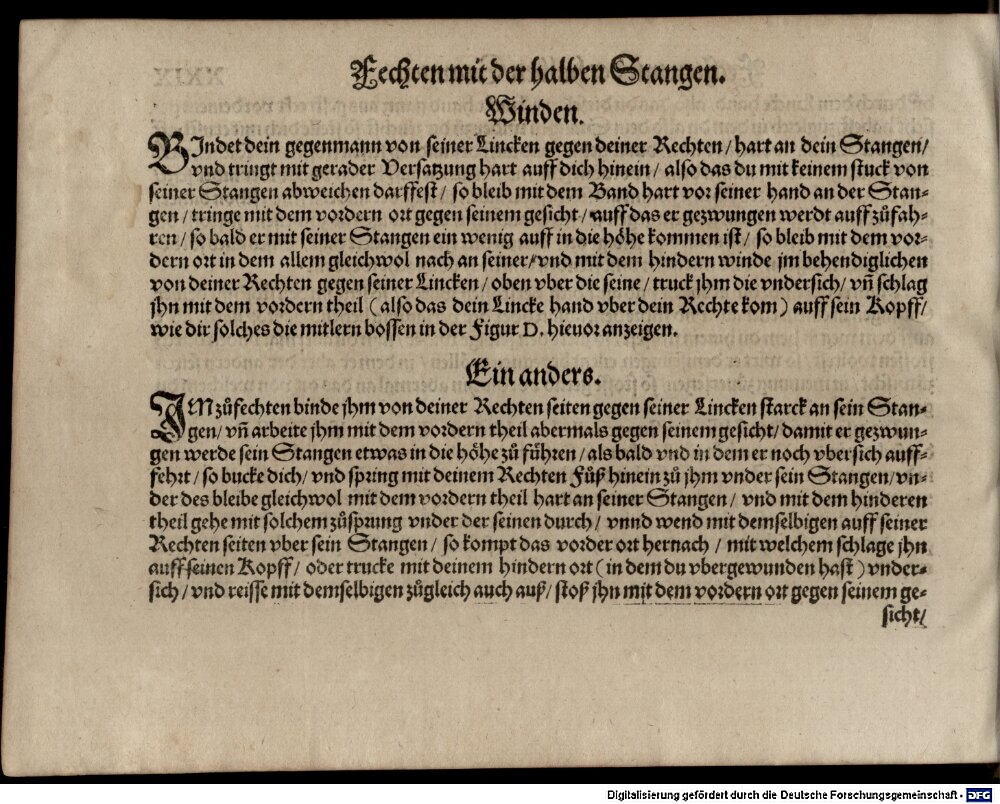 Fechten mit der halben Stangen.
Winden.
BIndet dein gegenmann von seiner Lincken gegen deiner Rechten / hart an dein Stangen /
vnd tringt mit gerader Versatzung hart auff dich hinein / also das du mit keinem stuck von
seiner Stangen abweichen darffest / so bleib mit dem Band hart vor seiner hand an der Stan-
gen / tringe mit dem vordern ort gegen seinem gesicht / auff das er gezwungen werdt auff zůfah-
ren / so bald er mit seiner Stangen ein wenig auff in die höhe kommen ist / so bleib mit dem vor-
dern ort in dem allem gleichwol nach an seiner / vnd mit dem hindern winde jm behendiglichen
von deiner Rechten gegen seiner Lincken / oben vber die seine / truck jhm die vndersich / vn̄ schlag
jhn mit dem vordern theil ( also das dein Lincke hand vber dein Rechte kom ) auff sein Kopff /
wie dir solches die mitlern bossen in der Figur D. hieuor anzeigen.
Ein anders.
IM zůfechten binde jhm von deiner Rechten seiten gegen seiner Lincken starck an sein Stan-
gen / vn̄ arbeite jhm mit dem vordern theil abermals gegen seinem gesicht / damit er gezwun-
gen werde sein Stangen etwas in die höhe zů führen / als bald vnd in dem er noch vbersich auff-
fehrt / so bucke dich / vnd spring mit deinem Rechten Fůß hinein zů jhm vnder sein Stangen / vn-
der des bleibe gleichwol mit dem vordern theil hart an seiner Stangen / vnd mit dem hinderen
theil gehe mit solchem zůsprung vnder der seinen durch / vnnd wend mit demselbigen auff seiner
Rechten seiten vber sein Stangen / so kompt das vorder ort hernach / mit welchem schlage jhn
auff seinen Kopff / oder trucke mit deinem hindern ort ( in dem du vbergewunden hast ) vnder-
sich / vnd reisse mit demselbigen zůgleich auch auß / stoß jhn mit dem vordern ort gegen seinem ge-
sicht /
Digitalisierung gefördert durch die Deutsche Forschungsgemeinschaft - DFG